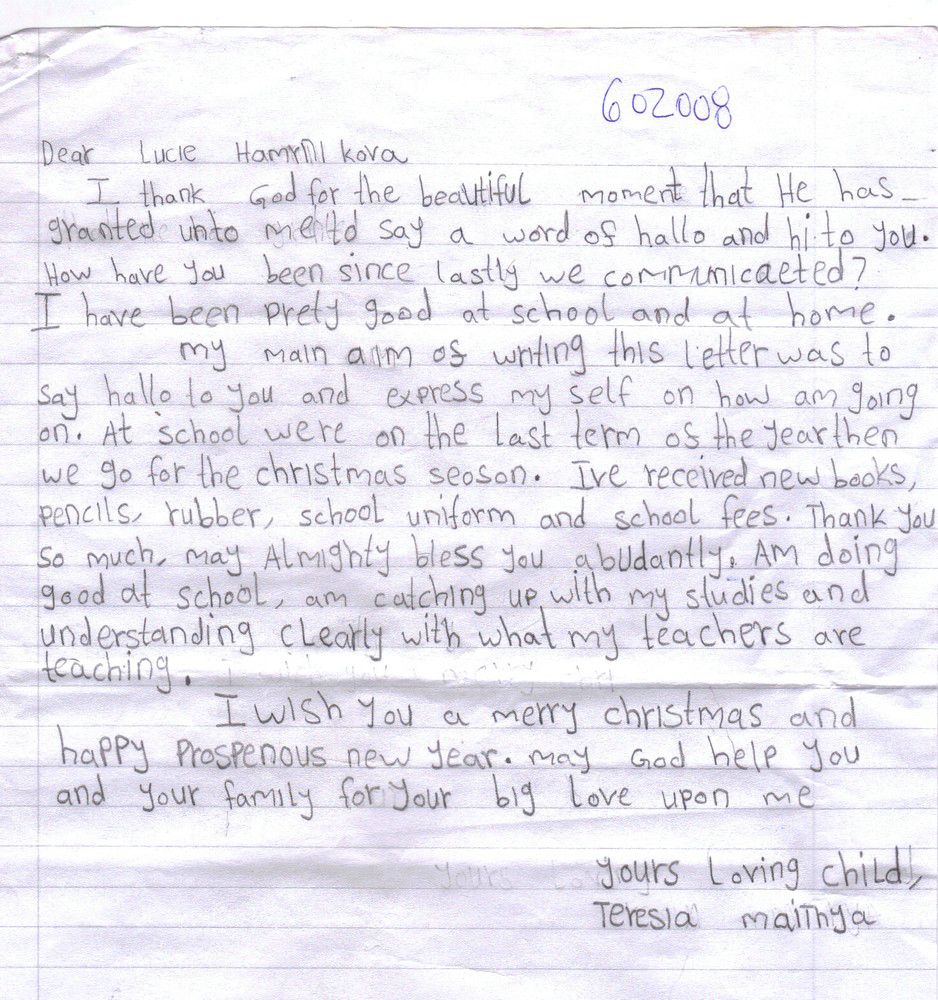 602008
Dear Lucie Hamrill kova
I thank God for the beautiful moment that He has
granted unto me to say a word of hallo and hi to you.
How have you been since lastly we communicaeted?
I have been prety good at school and at home.
my main aim of writing this letter was to
say hallo to you and express my self on how am going
on. At school were on the last term of the year then
we go for the christmas seoson. Ive received new books,
pencils, rubber, school uniform and school fees. Thank you
so much, may Almighty bless you abudantly. Am doing
good at school, am catching up with my studies and
understanding clearly with what my teachers are
teaching.
I wish you a merry christmas and
happy prospenous new year. may God help you
and your family for your big love upon me
yours Loving child,
Teresia maithya